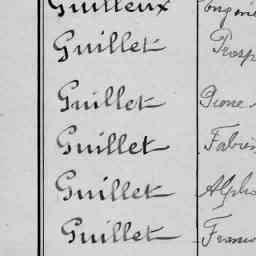 Guilleux
Guillet Prosp
Guillet
Guillet Fabien
Guillet Alpho
Guillet Franc